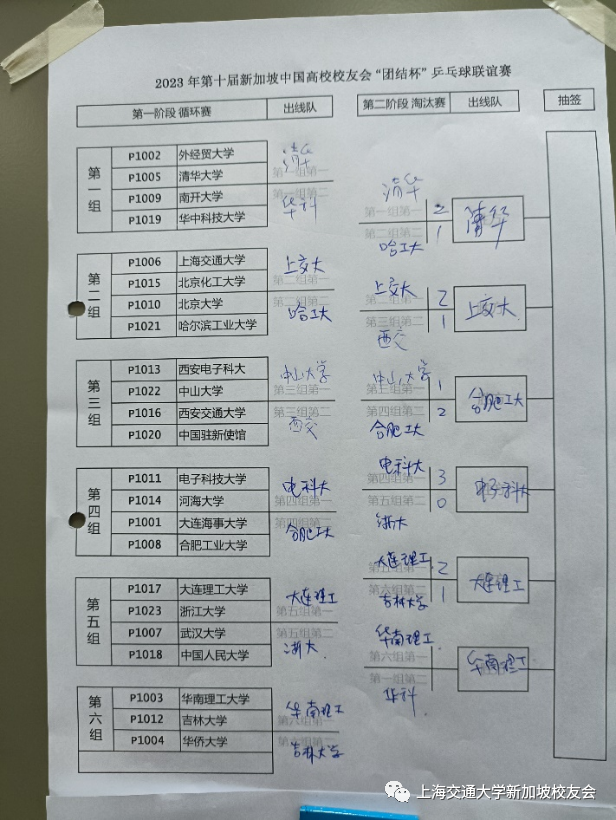 2023 年第十届新加坡中国高校校友会“团结杯”乒乓球联谊赛
第一阶段 循环赛 出线队
第二阶段 淘汰赛 出线队
抽签
第一组
P1002 外经贸大学
P1005 清华大学
P1009 南开大学
P1019 华中科技大学
清华
第一组第一
第一组第二
华科
第二组
P1006 上海交通大学
P1015 北京化工大学
P1010 北京大学
P1021 哈尔滨工业大学
上交大
第二组第一
第二组第二
哈工大
第三组
P1013 西安电子科大
P1022 中山大学
P1016 西安交通大学
P1020 中国驻新使馆
中山大学
第三组第一
第三组第二
西交
第四组
P1011 电子科技大学
P1014 河海大学
P1001 大连海事大学
P1008 合肥工业大学
电科大
第四组第一
第四组第二
合肥工大
第五组
P1017 大连理工大学
P1023 浙江大学
P1007 武汉大学
P1018 中国人民大学
大连理工
第五组第一
第五组第二
浙大
第六组
P1003 华南理工大学
P1012 吉林大学
P1004 华侨大学
华南理工
第六组第一
吉林大学
清华
第一组第一 2
第二组第二 1
哈工大
清华
上交大
第二组第一 2
第三组第二 1
西交
上交大
中山大学
第三组第一 1
第四组第二 2
合肥工大
合肥工大
电科大
第四组第一 3
第五组第二 0
浙大
电子科大
大连理工
第五组第一 2
第六组第二 1
吉林大学
大连理工
华南理工
第六组第一
第一组第二
华科
华南理工
上海交通大学新加坡校友会